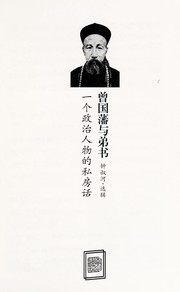 曾国藩与弟书
钟叔河·选辑
一个政治人物的私房话